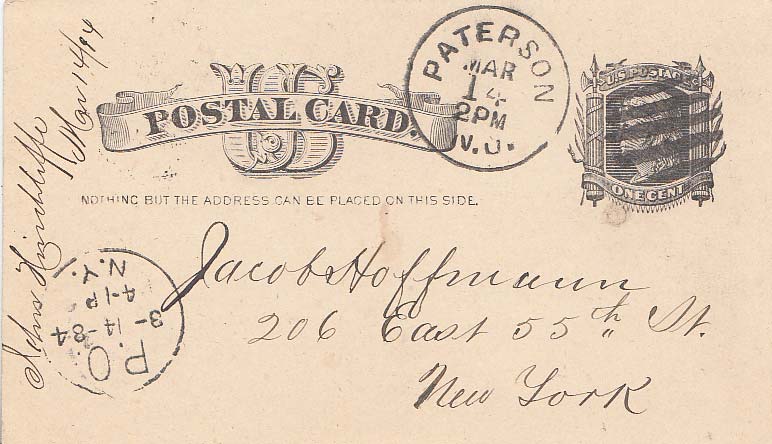 U.S. POSTAGE
ONE CENT
US
POSTAL CARD.
NOTHING BUT THE ADDRESS CAN BE PLACED ON THIS SIDE.
PATERSON
MAR
14
2PM
N.J.
Jacob Hoffmann
206 East 55th St.
New York
Johns Hinchliffe
Mar 14/84
P.O.
3-14-84
4-1P
N.Y.